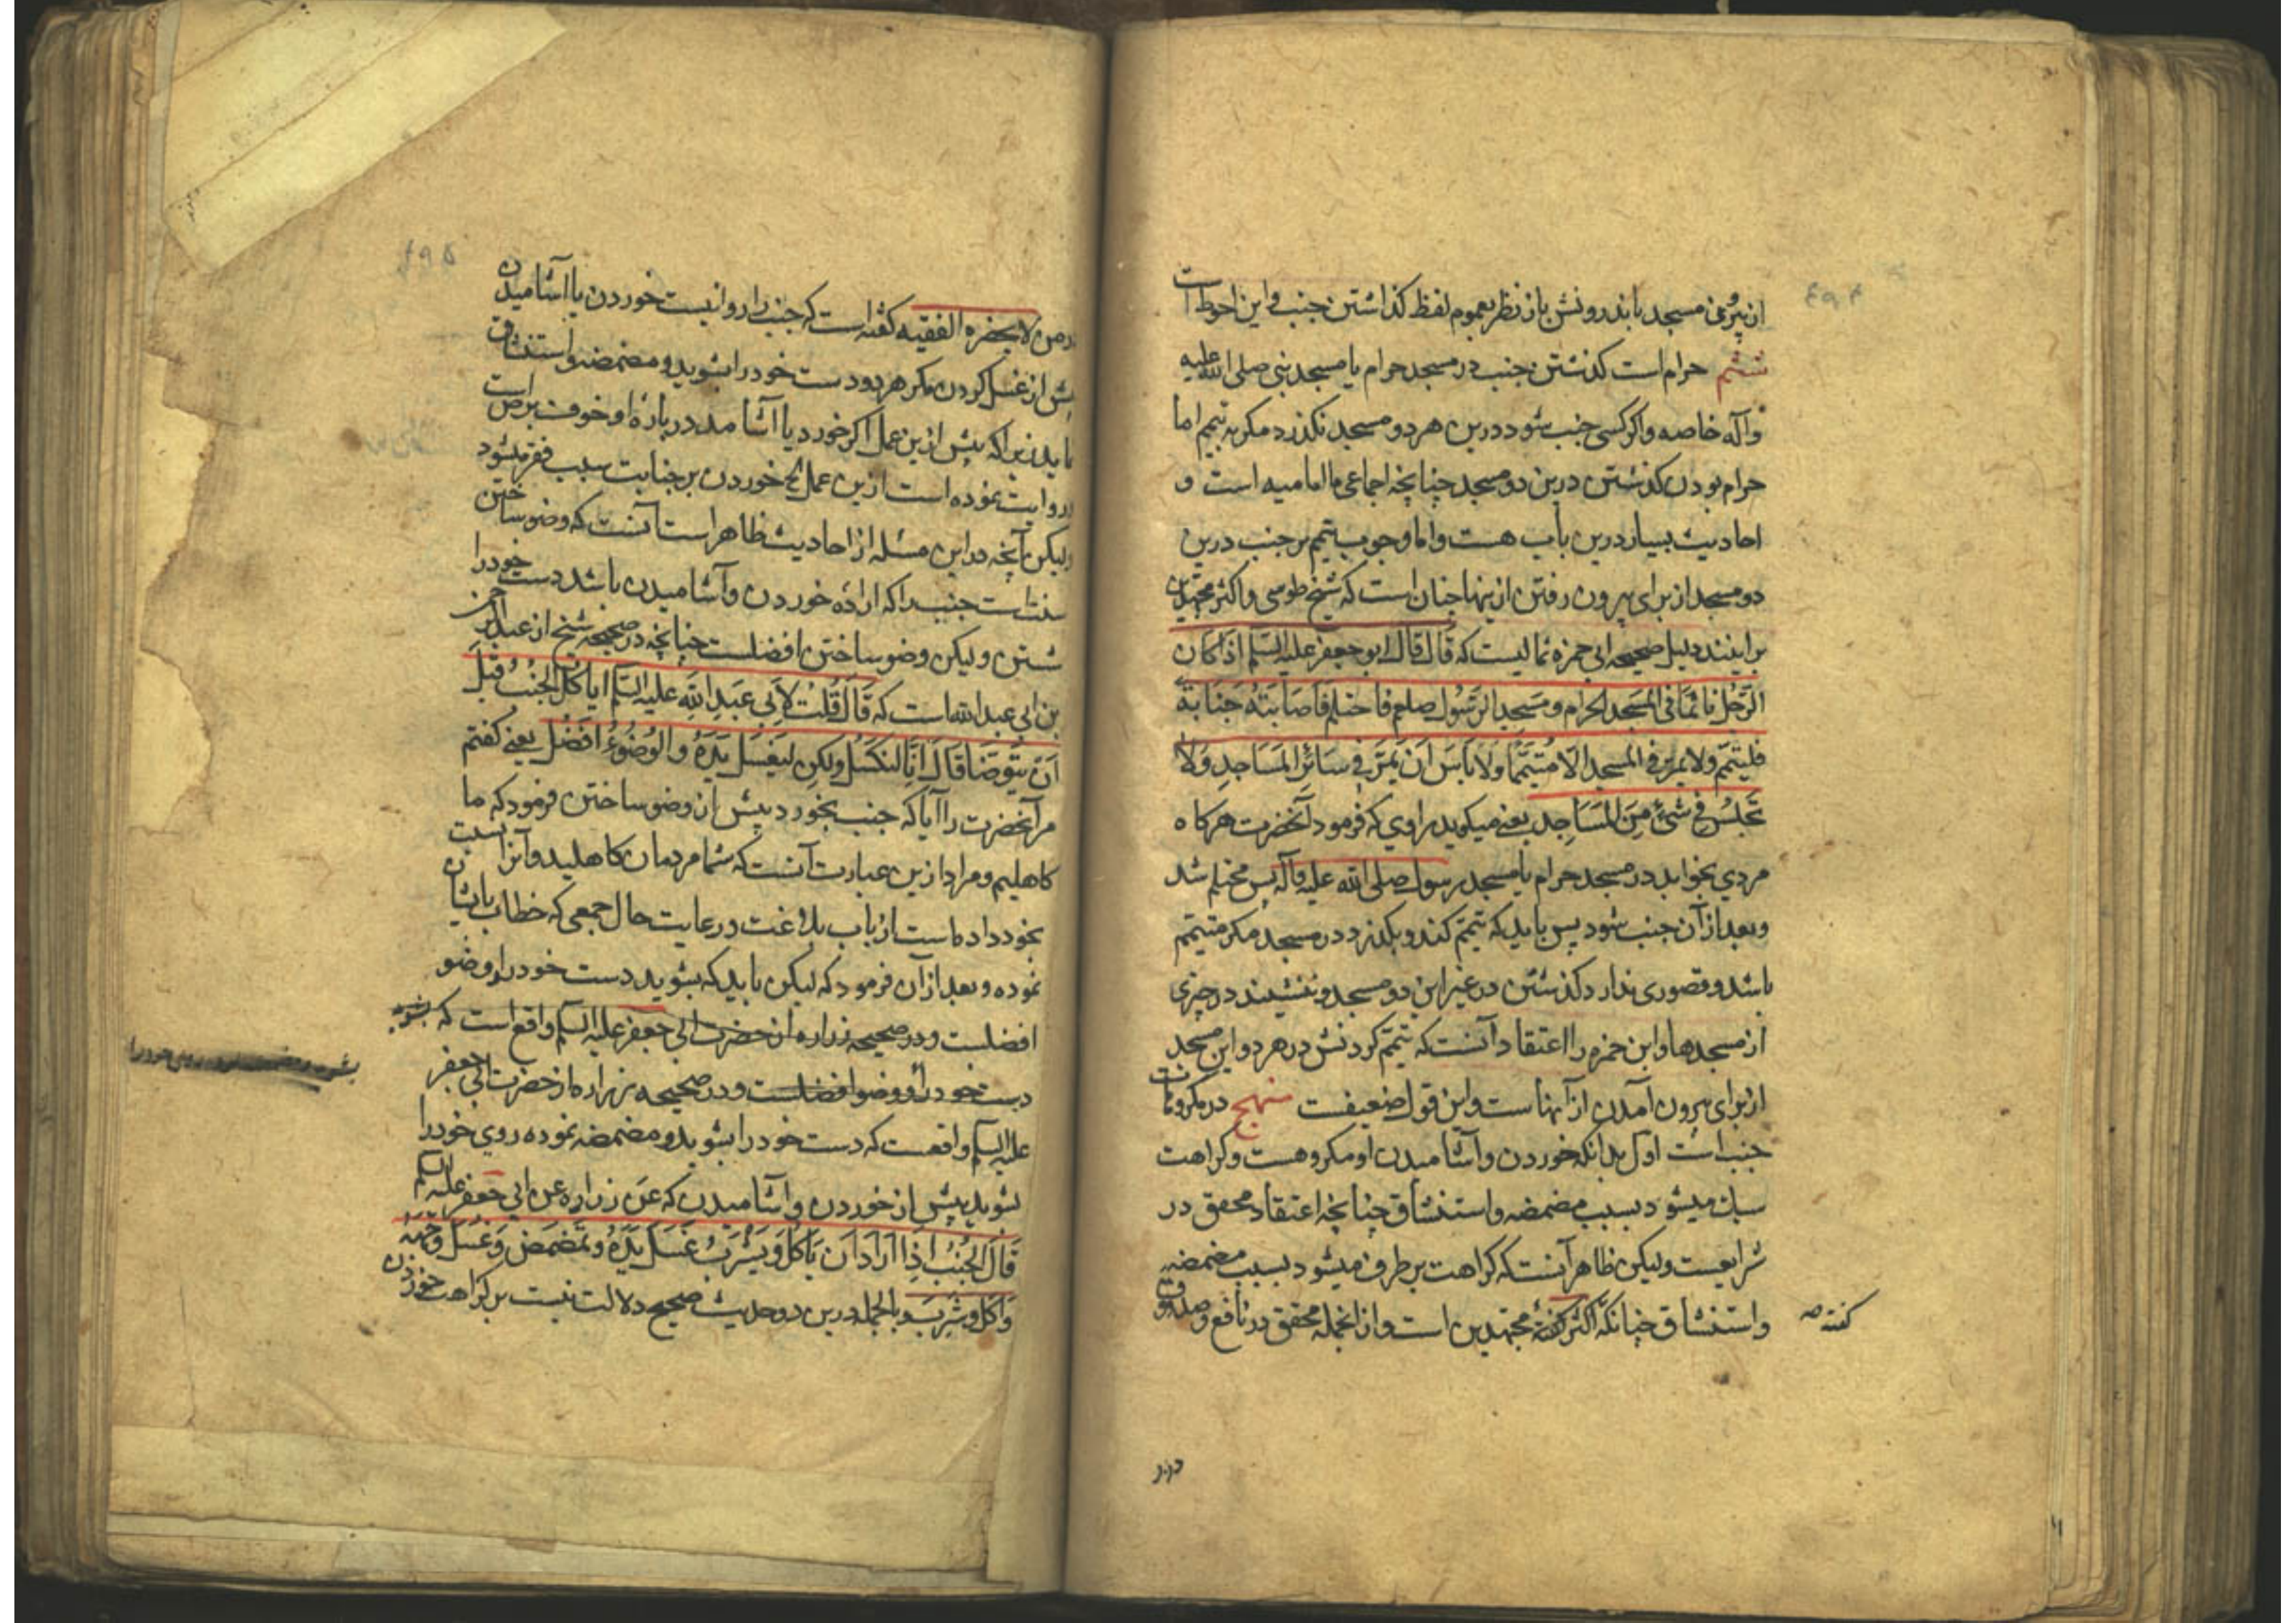 ۴۹۴
از بیرون مسجد باندرونش باز نظر بعموم لفظ گذاشتن جنب و این احوط است
ششم حرام است گذشتن جنب در مسجد حرام یا مسجد نبی صلی الله علیه
وآله خاصه واگر کسی جنب شود درین هر دو مسجد نگذرد مگر به تیمم اما
حرام بودن گذشتن درین دو مسجد چنانچه اجماعی ما امامیه است و
احادیث بسیار درین باب هست واما وجوب تیمم بر جنب درین
دو مسجد از برای بیرون رفتن ازینها چنان است که شیخ طوسی واکثر مجتهدین
براینند دلیل صحیحه ابی حمزه ثمالیست که قال قال ابو جعفر علیه السلم اذا کان
الرَّجُل نائمًا فی المسجد الحرام ومسجد الرسول صلعم فاحتلم فاصابته جنابة
فلیتیمّم ولا یمر فی المسجد الّا متیمّمًا ولا باس ان یمرّ فی سائر المساجد ولا
تجلس فی شئ من المساجد یعنی میگوید راوی که فرمود آنحضرت هرکاه
مردی بخوابد در مسجد حرام یا مسجد رسول صلی الله علیه وآله پس محتلم شد
وبعد از آن جنب شود پس باید که تیمّم کند وبگذرد در مسجد مگر متیمم
باشد وقصوری ندارد گذشتن در غیر این دو مسجد وننشیند در چیزی
از مسجدها وابن حمزه را اعتقاد آنست که تیمّم کردنش در هر دو این مسجد
از برای بیرون آمدن از آنها سنت است واین قول ضعیفست منهج در مکروهات
جنب است اول بدانکه خوردن وآشامیدن او مکروهست وکراهت
سبک میشود بسبب مضمضه واستنشاق چنانچه اعتقاد محقق در
شرایعست ولیکن ظاهر آنست که کراهت برطرف میشود بسبب مضمضه
واستنشاق چنانکه اکثر گفته مجتهدین است واز انجمله محقق در نافع وصدوق
گفته صه
در
۴۹۵
در من لایحضره الفقیه گفته است که جنب را روا نیست خوردن یا آشامیدن
پیش از غسل کردن مگر هر دو دست خود را بشوید ومضمضه واستنشاق
نماید زیرا که پیش ازین عمل اگر خورد یا آشامد درباره او خوف برص است
وروایت نموده است ازین عمل که خوردن بر جنابت سبب فقر میشود
ولیکن آنچه در این مسئله از احادیث ظاهر است آنست که وضو ساختن
سنت است جنب را که اراده خوردن وآشامیدن باشد دست خود را
شستن ولیکن وضو ساختن افضلست چنانچه در صحیحه شیخ از عبدالرحمن
بن ابی عبدالله است که قَالَ قُلتُ لِأَبی عَبدِ اللهِ علیه السلم ایاکل الجنب قبل
اَن یتوضّا قَالَ انّا لنکسل ولکن لیغسل یَدَهُ والوُضُوءُ افضَل یعنی گفتم
مر آنحضرت را آیا که جنب بخورد پیش از وضو ساختن فرمود که ما
کاهلیم ومراد ازین عبارت آنست که شما مردمان کاهلید وآنرا نسبت
بخود داد ماست از باب بلاغت ورعایت حال جمعی که خطاب باایشان
نموده وبعد از آن فرمود که لیکن باید که بشوید دست خود را وضو
افضلست ودر صحیحه زراره از حضرت ابی جعفر علیه السلم واقع است که بشوید
دست خود را ووضو افضلست ودر صحیحه زراره از حضرت ابی جعفر
علیه السلم واقعست که دست خود را بشوید ومضمضه نموده روی خود را
بشوید پیش از خوردن وآشامیدن که عن زراره عن ابی جعفر علیه السلم
قَالَ الجُنُبُ اِذَا ارادَ ان یَاکُلَ وَیَشرَبَ غَسَلَ یَدَهُ وتَمَضمَضَ وَغَسَلَ وَجهَهُ
وَاَکَلَ وَشَرِبَ وبالجمله درین دو حدیث صحیح دلالت نیست بر کراهت خوردن